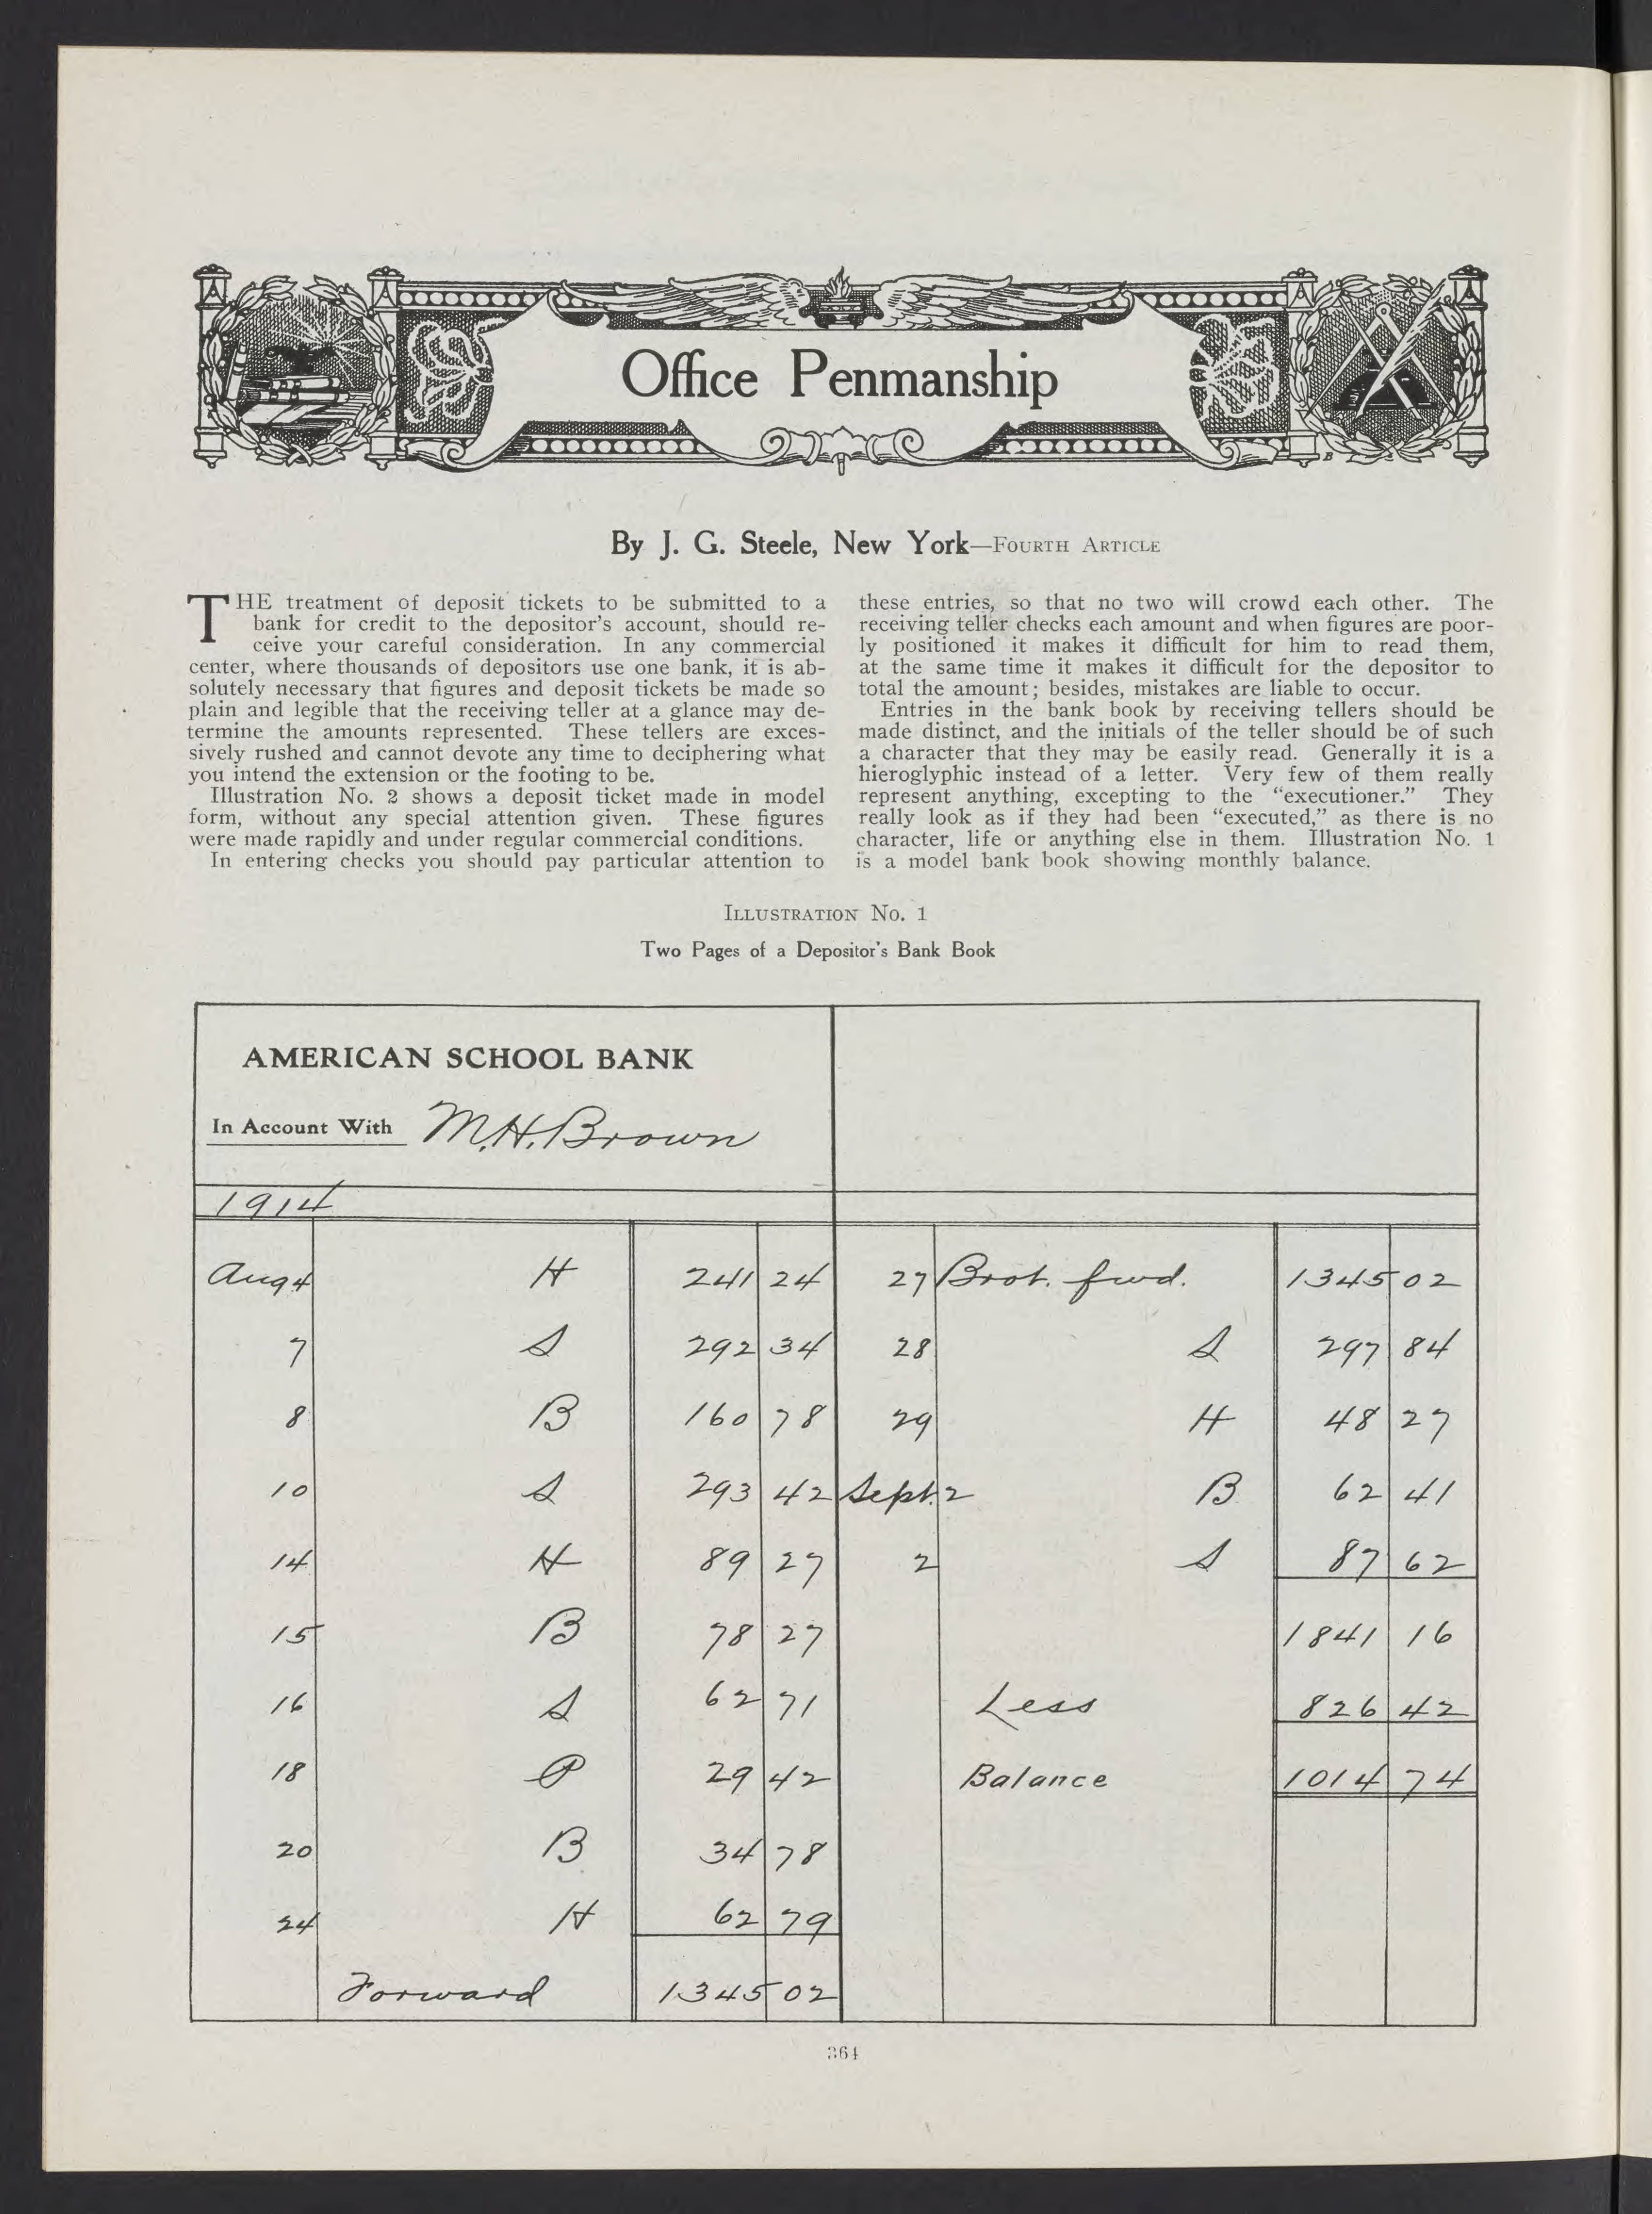 Office Penmanship
By J. G. Steele, New York—Fourth Article
THE treatment of deposit tickets to be submitted to a
bank for credit to the depositor's account, should re-
ceive your careful consideration. In any commercial
center, where thousands of depositors use one bank, it is ab-
solutely necessary that figures and deposit tickets be made so
plain and legible that the receiving teller at a glance may de-
termine the amounts represented. These tellers are exces-
sively rushed and cannot devote any time to deciphering what
you intend the extension or the footing to be.
Illustration No. 2 shows a deposit ticket made in model
form, without any special attention given. These figures
were made rapidly and under regular commercial conditions.
In entering checks you should pay particular attention to
these entries, so that no two will crowd each other. The
receiving teller checks each amount and when figures are poor-
ly positioned it makes it difficult for him to read them,
at the same time it makes it difficult for the depositor to
total the amount; besides, mistakes are liable to occur.
Entries in the bank book by receiving tellers should be
made distinct, and the initials of the teller should be of such
a character that they may be easily read. Generally it is a
hieroglyphic instead of a letter. Very few of them really
represent anything, excepting to the "executioner." They
really look as if they had been "executed," as there is no
character, life or anything else in them. Illustration No. 1
is a model bank book showing monthly balance.
Illustration No. 1
Two Pages of a Depositor's Bank Book
AMERICAN SCHOOL BANK
In Account With M.H. Brown
1914
Aug 4 H 241 24
7 S 292 34
8 B 160 78
10 S 293 42
14 H 89 27
15 B 78 27
16 S 62 71
18 P 29 42
20 B 34 78
24 H 62 79
Forward 1345 02
27 Brot. fwd. 1345 02
28 S 297 84
29 H 48 27
Sept. 2 B 62 41
2 S 87 62
1841 16
Less 826 42
Balance 1014 74
364